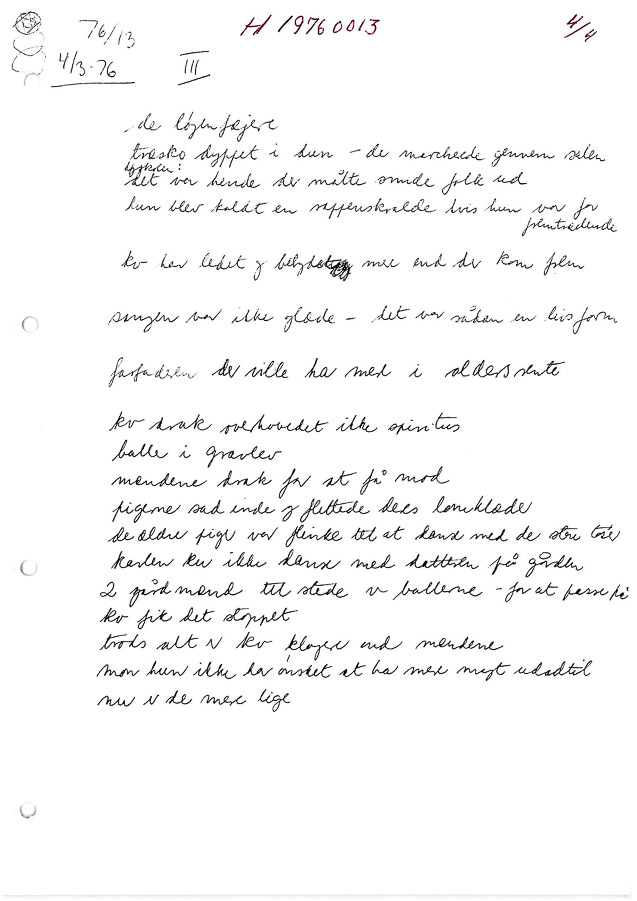 76/13
H 19760013
4/4
4/3-76
III
de løgenfejere
træsko dyppet i dun – de marcherede gennem salen
det var hende der måtte smide folk ud
hun blev kaldt en rappenskralde hvis hun var for
fremtrædende
kv har ledet og betydet mere end der kom frem
sangen var ikke glæde – det var sådan en livsform
farfaderen der ville ha med i aldersrente
kv drak overhovedet ikke spiritus
balle i Gravlev
mændene drak for at få mod
pigerne sad inde og flettede deres lomklæder
de ældre piger var flinke til at danse med de store
karlen ku ikke danse med datteren på gården
2 gårdmænd til stede v ballerne – for at passe på
kv fik det stoppet
trods alt v kv klogere end mændene
mon hun ikke har ønsket at ha mere magt udadtil
nu v de mere lige